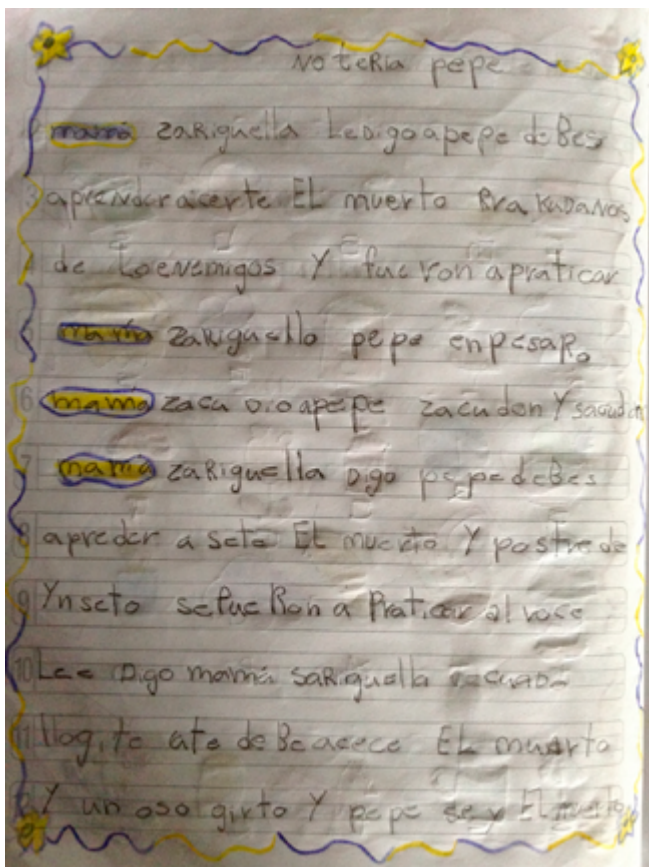 NO teRia pepe
mamá zaRiguella LeDigoapepe deBes
3 apreNderacerte EL muerto PRa KuDaNos
4 de LoeNemigos Y fueron apraticar
5 mamá zaRiguella pepe enpesaRo
6 mamá zacuDioapepe zacudon Y sacudon
7 mama zaRiguella Digo pepe deBes
8 apreder a sete EL muerto Y postre de
9 Ynseto sefueRon a PRaticar al voce
10 Lee Digo mamá saRiguella
11 llog,to ate deBeacece EL muerto
Y un oso girto Y pepe se y EL muerto